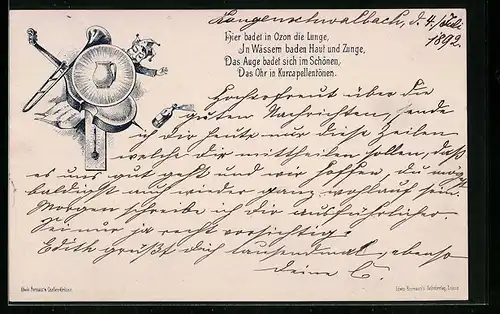 Langenschwalbach, d. 4. Juli
1892.
Hier badet in Ozon die Lunge,
In Wässern baden Haut und Zunge,
Das Auge badet sich im Schönen,
Das Ohr in Kurcapellentönen.
Hocherfreut über die
guten Nachrichten, sende
ich dir heute nur diese Zeilen
welche dir mittheilen sollen, daß
es uns gut geht und wir hoffen, du mögst
baldigst auch wieder ganz wohlauf sein.
Morgen schreibe ich dir ausführlicher.
Sei nur ja recht vorsichtig!
Edith grüßt dich tausendmal, ebenso
deine C.